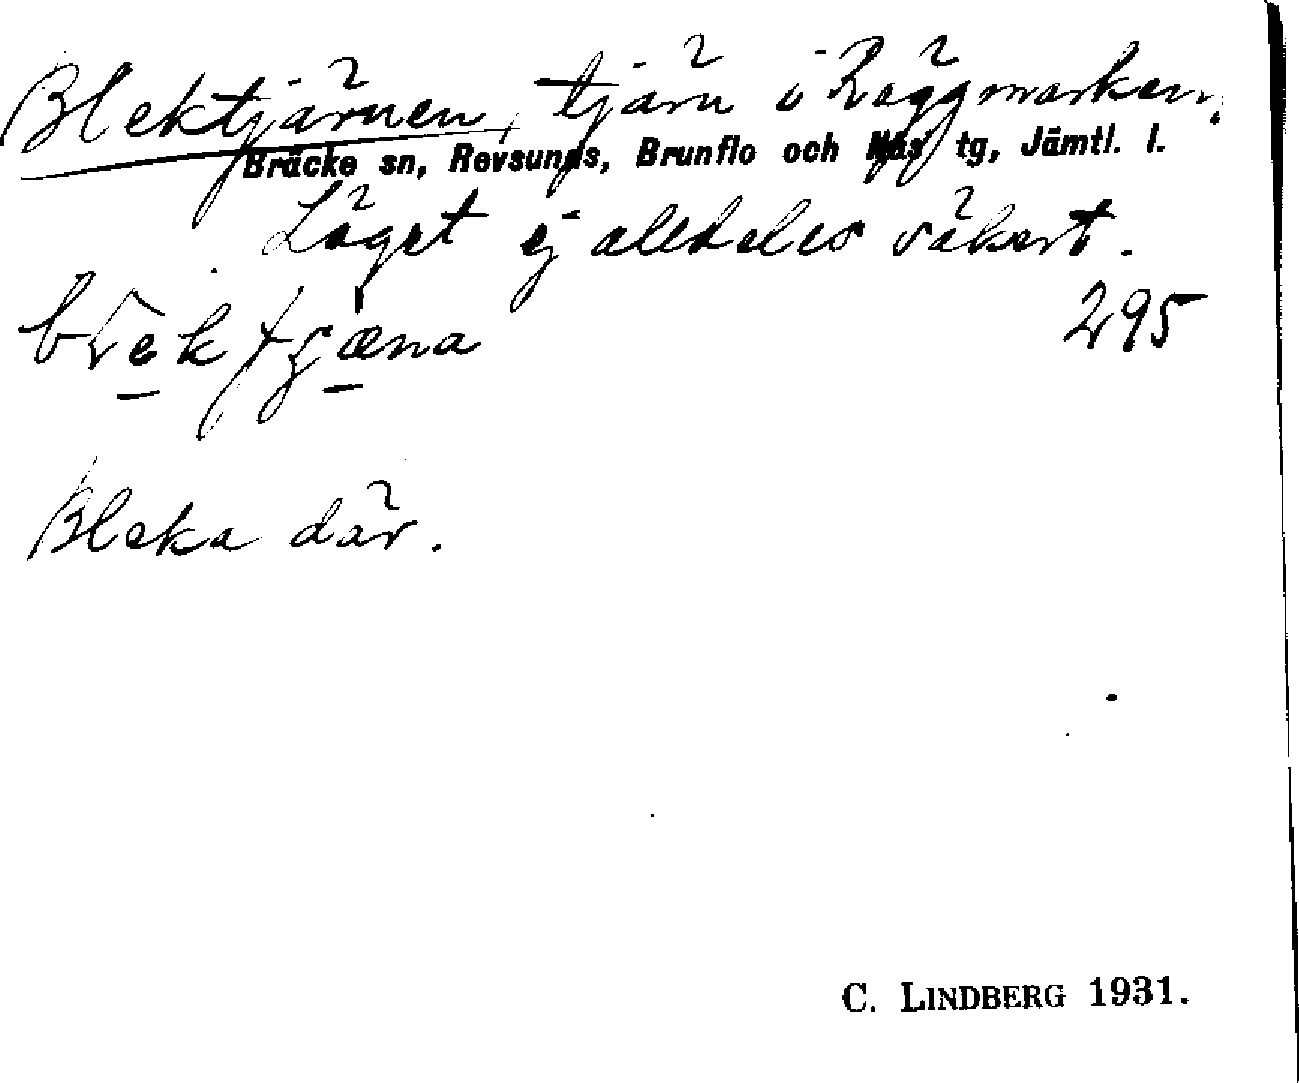 Blektjärnen, tjärn i Räggmarken.
Bräcke sn, Revsunds, Brunflo och Näs tg, Jämtl. l.
Läget ej alldeles säkert.
295
Bleka där.
C. LINDBERG 1931.